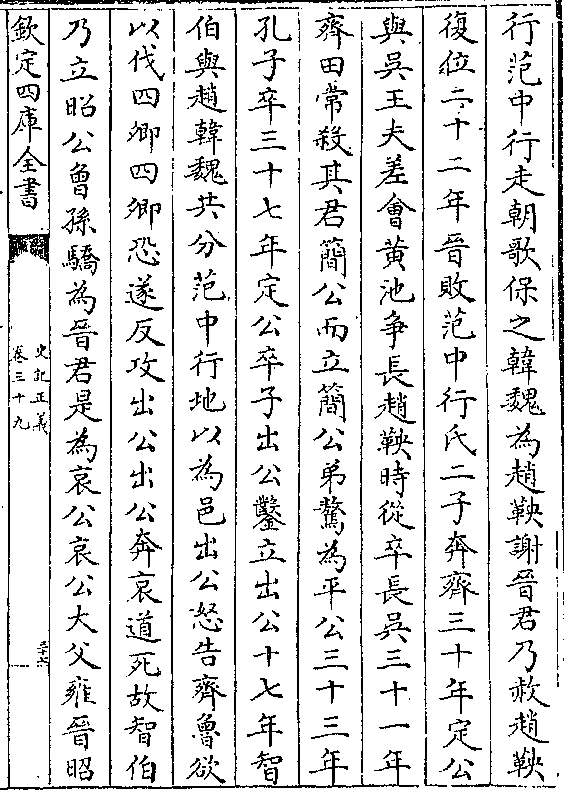 行范中行走朝歌保之韓魏為趙鞅謝晉君乃赦趙鞅
復位二十二年晉敗范中行氏二子奔齊三十年定公
與吳王夫差會黃池爭長趙鞅時從卒長吳三十一年
齊田常殺其君簡公而立簡公弟驁為平公三十三年
孔子卒三十七年定公卒子出公鑿立出公十七年智
伯與趙韓魏共分范中行地以為邑出公怒告齊魯欲
以伐四卿四卿恐遂反攻出公出公奔哀道死故智伯
乃立昭公曾孫驕為晉君是為哀公哀公大父雍晉昭
欽定四庫全書
史記正義
卷三十九